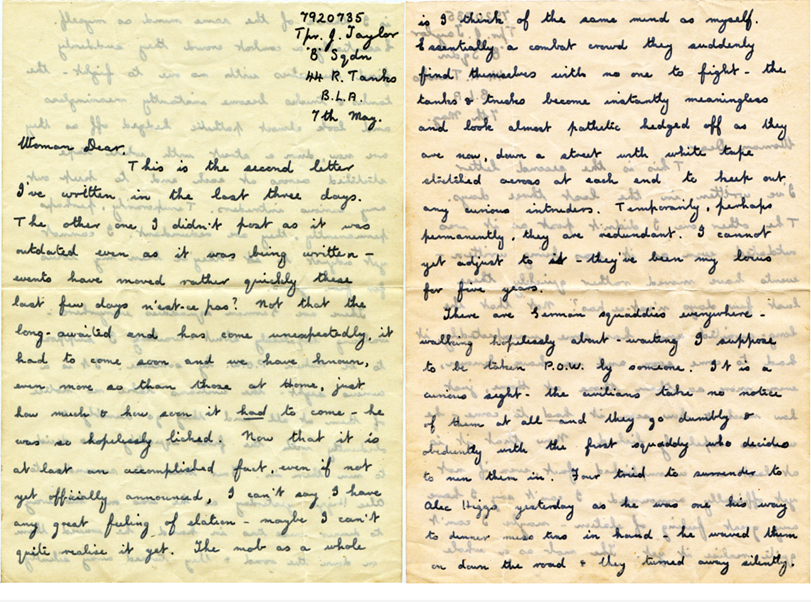 7920735
Tpr. J. Taylor
'B' Sqdn
44 R. Tanks
B.L.A.
7th May.
Woman Dear.
This is the second letter
I've written in the last three days.
The other one I didn't post as it was
outdated even as it was being written -
events have moved rather quickly these
last few days n'est-ce pas? Not that the
long-awaited end has come unexpectedly, it
had to come soon and we have known,
even more so than those at Home, just
how much & how soon it had to come - he
was so hopelessly licked. Now that it is
at last an accomplished fact, even if not
yet officially announced, I can't say I have
any great feeling of elation - maybe I can't
quite realise it yet. The mob as a whole
is I think of the same mind as myself.
Essentially a combat crowd they suddenly
find themselves with no one to fight - the
tanks & trucks become instantly meaningless
and look almost pathetic hedged off as they
are now, down a street with white tape
stretched across at each end to keep out
any curious intruders. Temporarily, perhaps
permanently, they are redundant. I cannot
yet adjust to it - they've been my
for five years.
There are German squaddies everywhere -
walking hopelessly about - waiting I suppose
to be taken P.O.W. by someone. It is a
curious sight - the civilians take no notice
of them at all - and they go dumbly &
obediently with the first squaddy who decides
to run them in. Four tried to surrender to
Alec Higgs yesterday as he was one his way
to dinner mess tins in hand - he waved them
on down the road & they turned away silently.